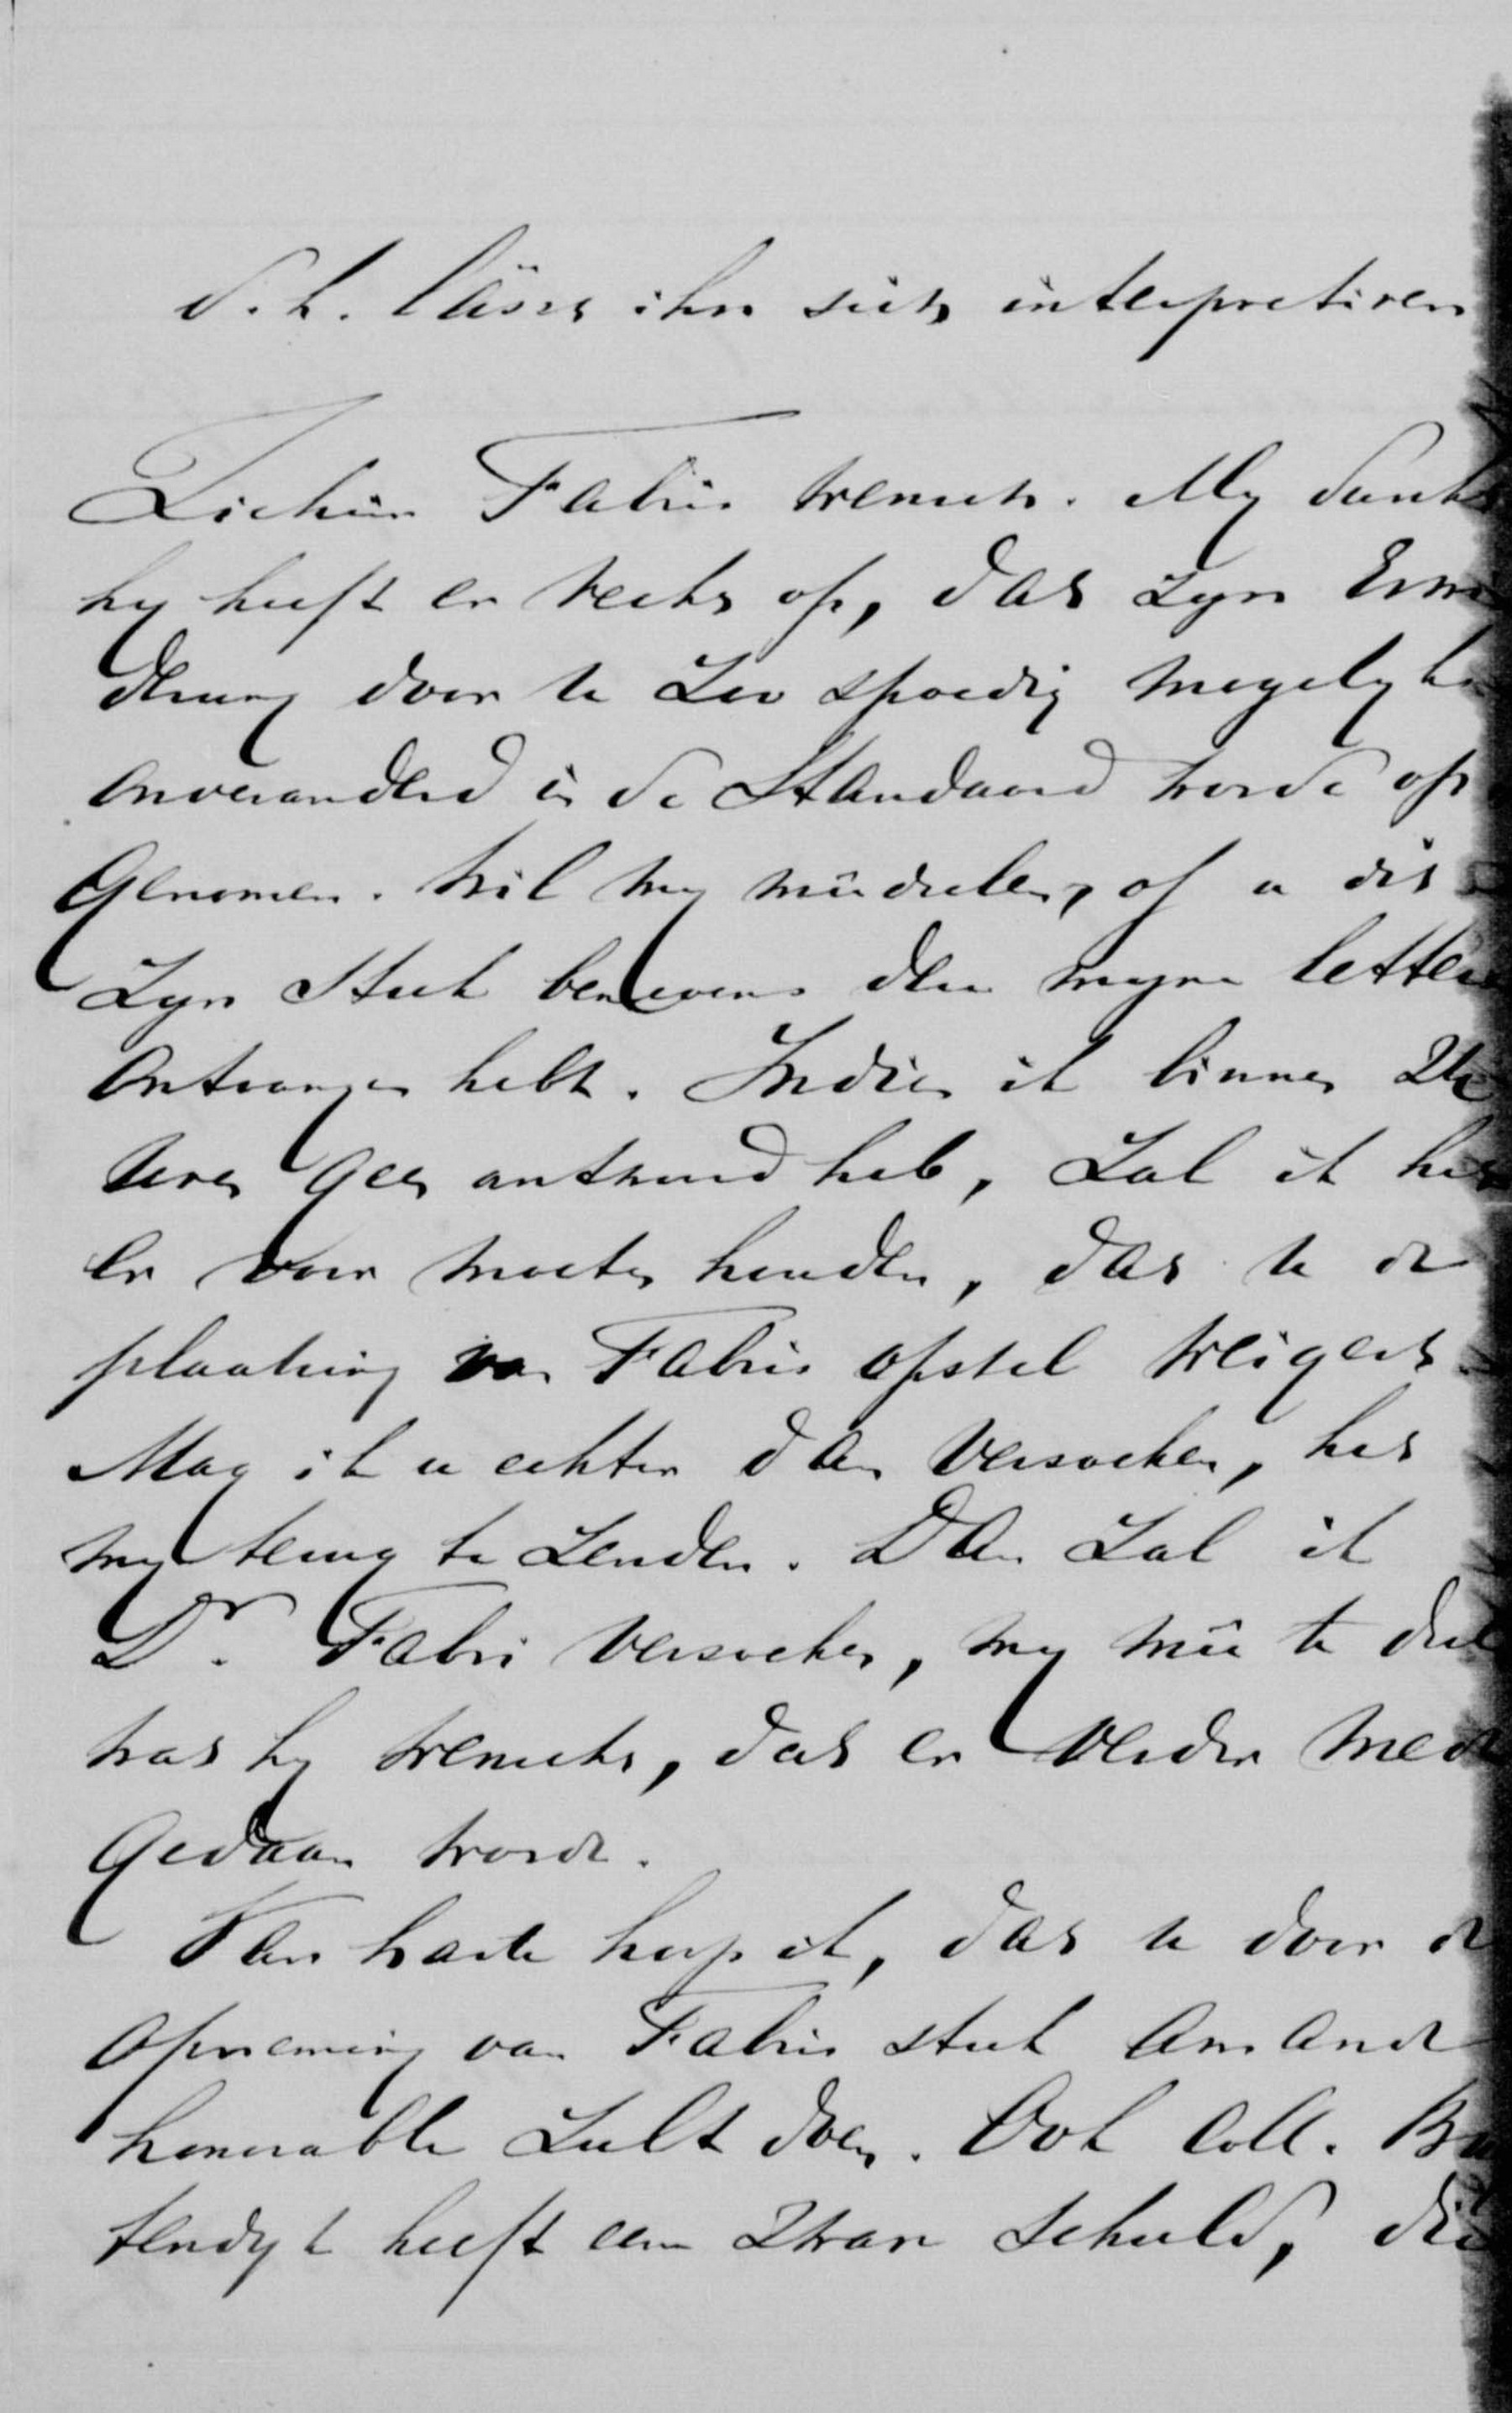 d. h. lässt ihn sich interpretiren
Ziehier Fabri's wensch. My dunkt
hy heeft er recht op, dat zyn Erwi
derung door u zoo spoedig mogelyk en
onveranderd in de Standaard worde op
genomen. Wil my meêdeelen, of u dit
zyn stuk benevens den myne letteren
ontvangen hebt. Indien ik binnen
uren geen antwoord heb, zal ik het
er voor moeten houden, dat u de
plaatsing van Fabri's opstel weigert.
Mag ik u echter dan verzoeken, het
my terug te zenden. Dan zal ik
Dr. Fabri verzoeken, my meê te deel
wat hy wenscht, dat er verder mede
gedaan worde.
Van harte hoop ik, dat u door de
opneming van Fabri's stuk amande
honorable zult doen. Ook Coll. Bu
tendyk heeft een zware schuld, die